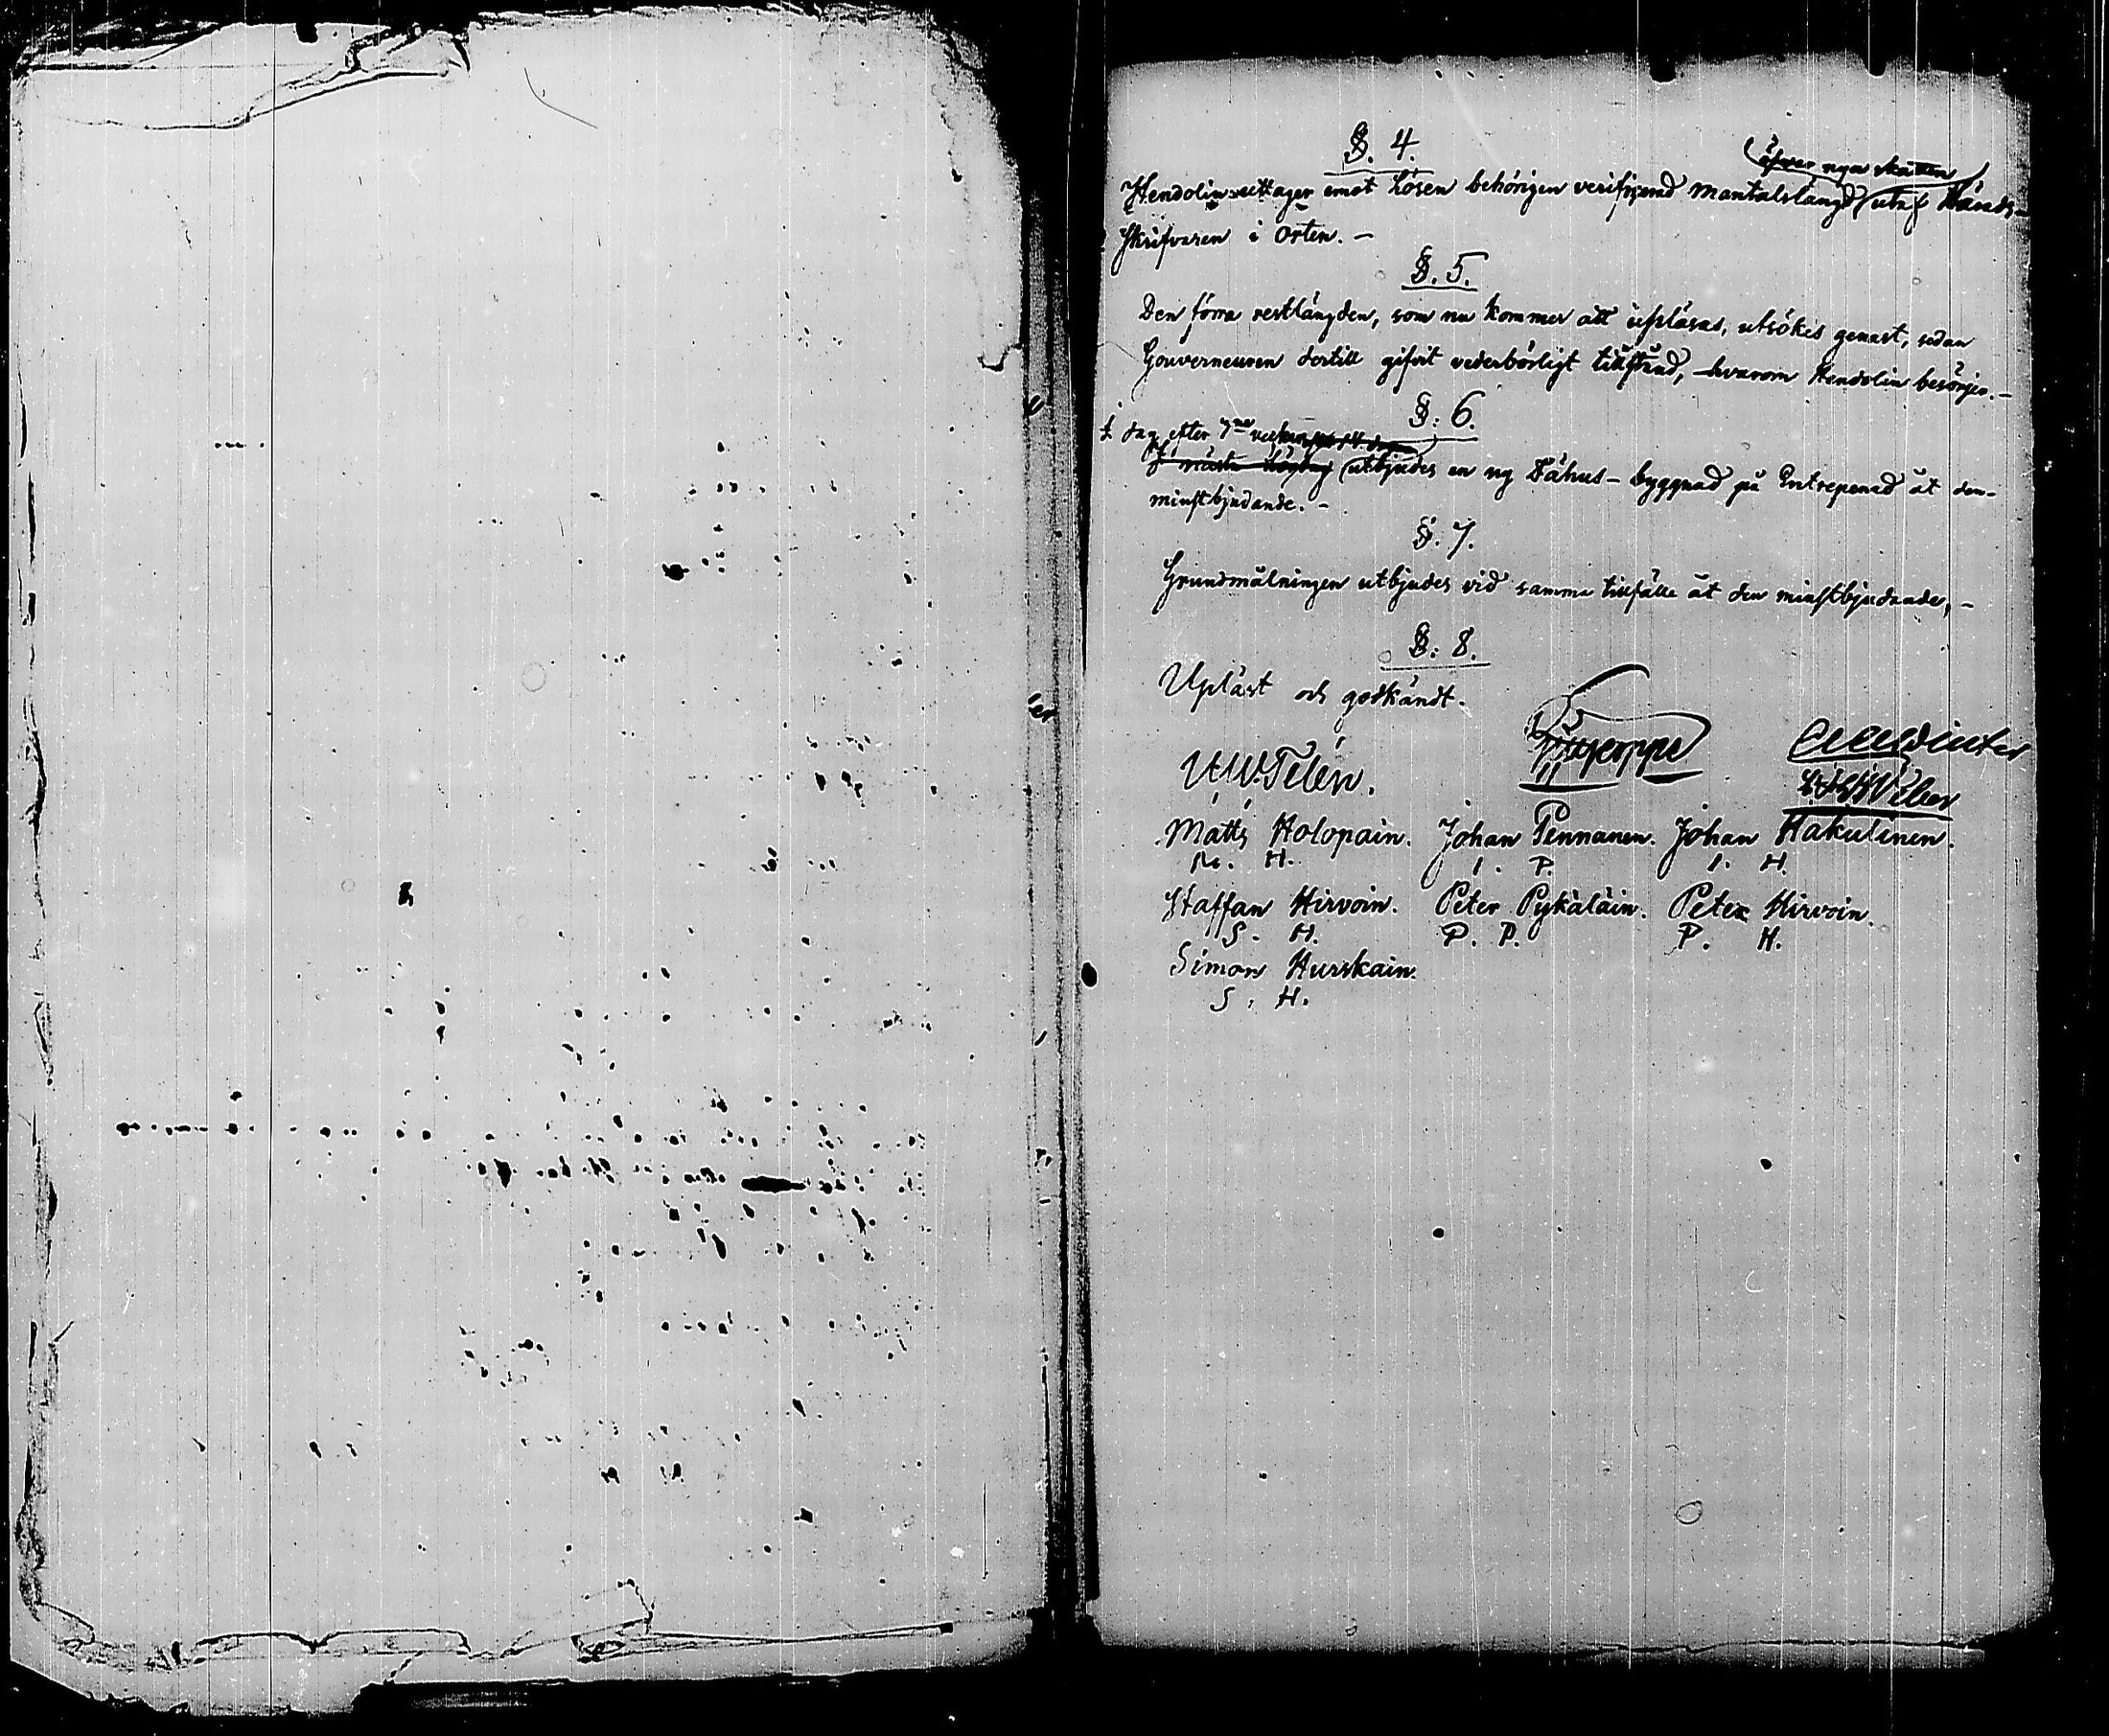 §. 4.
öfver nya skatten
Hendolin uttager emot Lösen behörigen verificerad Mantalslängd utaf Härads-
Skrifvaren i Orten. -
§. 5.
Den förra restlängden, som nu kommer att upläsas, utsökes genast, sedan
Gouverneuren dertill gifvit vederbörligt tillstånd, - hvarom Hendolin besörjer. -
§: 6.
dag efter 7ne veckor
utbjudes en ny Fähus- byggnad på Entrepenad åt den-
minstbjudande. -
§. 7.
Grundmålningen utbjudes vid samma tillfälle åt den minstbjudande, -
§: 8.
Upläst och godkändt.
Winter
Matts Holopain. Johan Pennanen. Johan Hakulinen.
M. H. I. P. I. H.
Staffan Hirvoin. Peter Pykäläin. Peter Hirvoin.
S. H. P. P. P. H.
Simon Hurskain.
S. H.